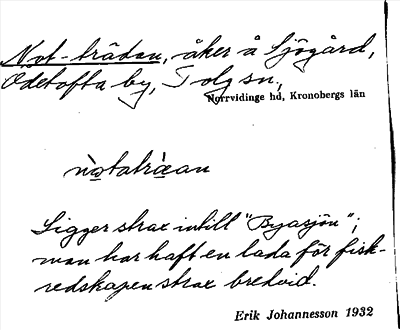 Not-trädan, åker å Sjögård,
Odetofta by, Tolg sn,
Norrvidinge hd, Kronobergs län
Ligger strax intill "Byasjön";
man har haft en lada för fisk-
redskapen strax bredvid.
Erik Johannesson 1932